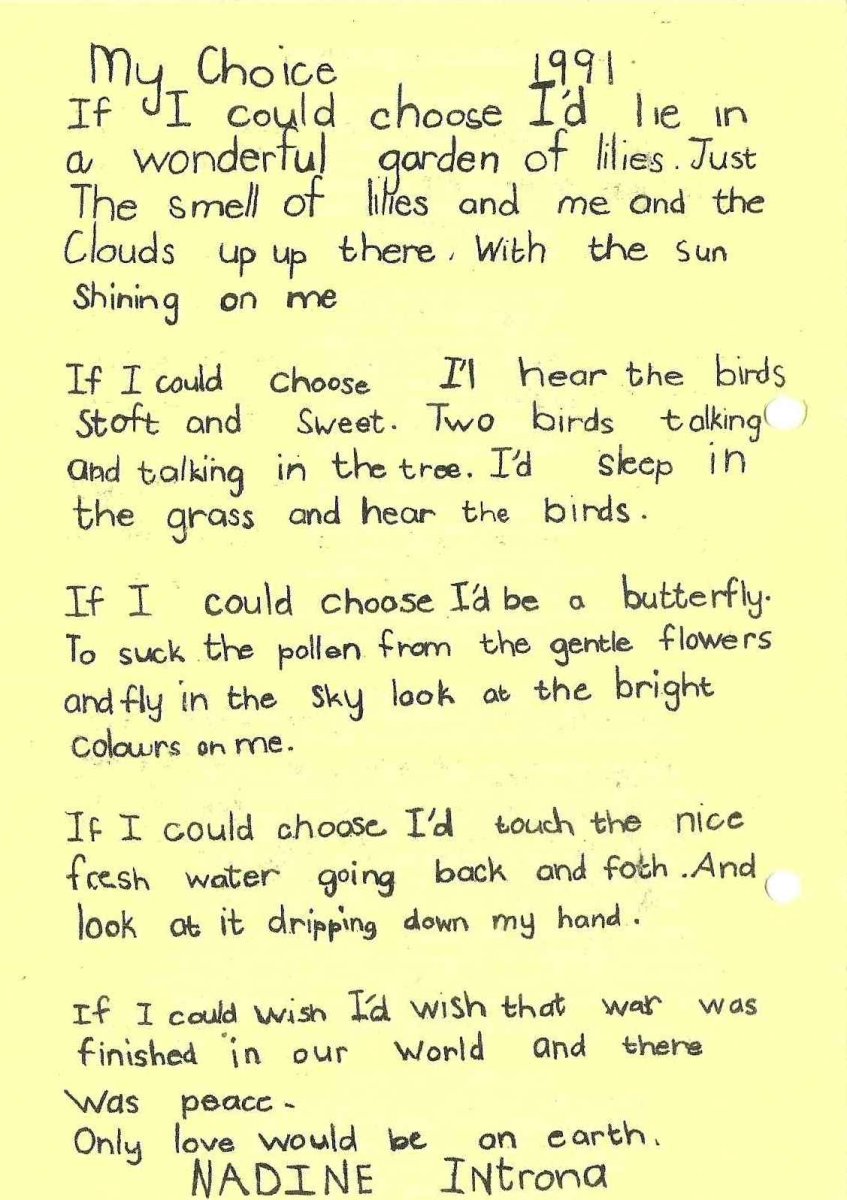 My Choice 1991
If I could choose I'd lie in
a wonderful garden of lilies. Just
The smell of lilies and me and the
Clouds up up there. With the sun
Shining on me
If I could choose I'l hear the birds
Stoft and Sweet. Two birds talking
and talking in the tree. I'd sleep in
the grass and hear the birds.
If I could choose I'd be a butterfly.
To suck the pollen from the gentle flowers
and fly in the sky look at the bright
colours on me.
If I could choose I'd touch the nice
fresh water going back and foth. And
look at it dripping down my hand.
If I could wish I'd wish that war was
finished in our world and there
Was peace.
Only love would be on earth.
NADINE INtrona